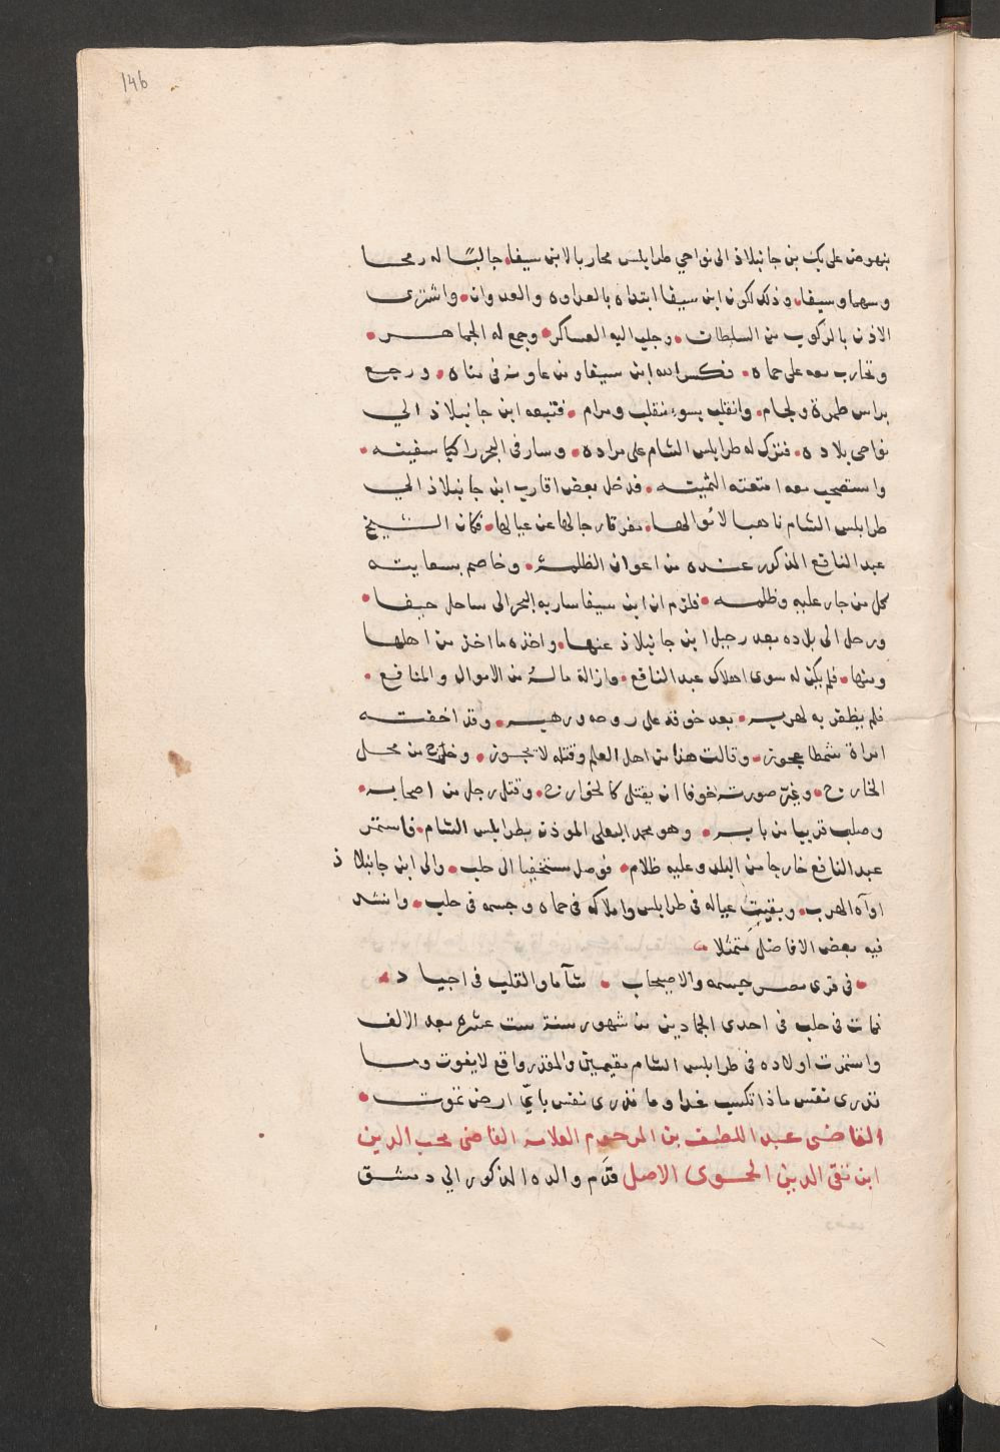 146
بنهوض على بك بن جانبلاذ الى نواحي طرابلس محاربا لابن سيفا جالبًا له رمحا
وسهما وسيفا، وذلك لكون ابن سيفا ابتداه بالعداوه والعدوان، واشترى
الاذن بالركوب من السلطان، وجلب اليه العساكر، وجمع له الجماهر،
وتحارب معه على حماه، فكسر الله ابن سيفا ومن عاونه في مناه، ورجع
براس طمرة ولجام، وانقلب بسوء منقلب ومرام، فتبعه ابن جانبلاذ الي
نواحى بلاده، فترك له طرابلس الشام على مراده، وسار فى البحر راكبا سفينته،
واستصحب معه امتعته الثمينه، فدخل بعض اقارب ابن جانبلاذ الي
طرابلس الشام ناهبا لاموالها، مفرقا رجالها عن عيالها، فكان الشيخ
عبد النافع المذكور عنده من اعوان الظلمة، وخاصم بسعايته
كل من جار عليه وظلمه، فلزم ان ابن سيفا سار به البحر الى ساحل حيفا،
ورحل الى بلاده بعد رحيل ابن جانبلاذ عنها، واخذه ما اخذ من اهلها
ومنها، فلم يكن له سوى اهلاك عبد النافع، وازالة ماله من الاموال والمنافع،
فلم يظفر به لهربه، بعد خوفه على روحه ورهبه، وقد اخفته
امراة شمطا عجوز، وقالت هذا من اهل العلم وقتله لا يجوز، وخرج من محل
الخارج، وغيّر صورته خوفا ان يقتل كالخوارج، وقتل رجل من اصحابه،
وصلب قريبا من بابه، وهو محمد البعلى الموذن بطرابلس الشام، فاستمر
عبد النافع خارجا من البلد وعليه ظلام، فوصل مستخفيا الى حلب، والى ابن جانبلاذ
اواه الهرب، وبقيت عياله فى طرابلس واملاكه فى حماه وجسمه فى حلب، وانشد
فيه بعض الافاضل متمثلا
فى قرى مصر جسمه والاصحاب، شآما والقلب فى اجياد،
فمات فى حلب فى احدى الجمادين من شهور سنة ست عشره بعد الالف
واستمرت اولاده فى طرابلس الشام مقيمين والمقدر واقع لا يفوت وما
تدرى نفس ماذا تكسب غدا وما تدرى نفس بايّ ارض تموت،
القاضى عبد اللطيف بن المرحوم العلامه القاضى محب الدين
ابن تقى الدين الحموى الاصل قدم والده المذكور الي دمشق